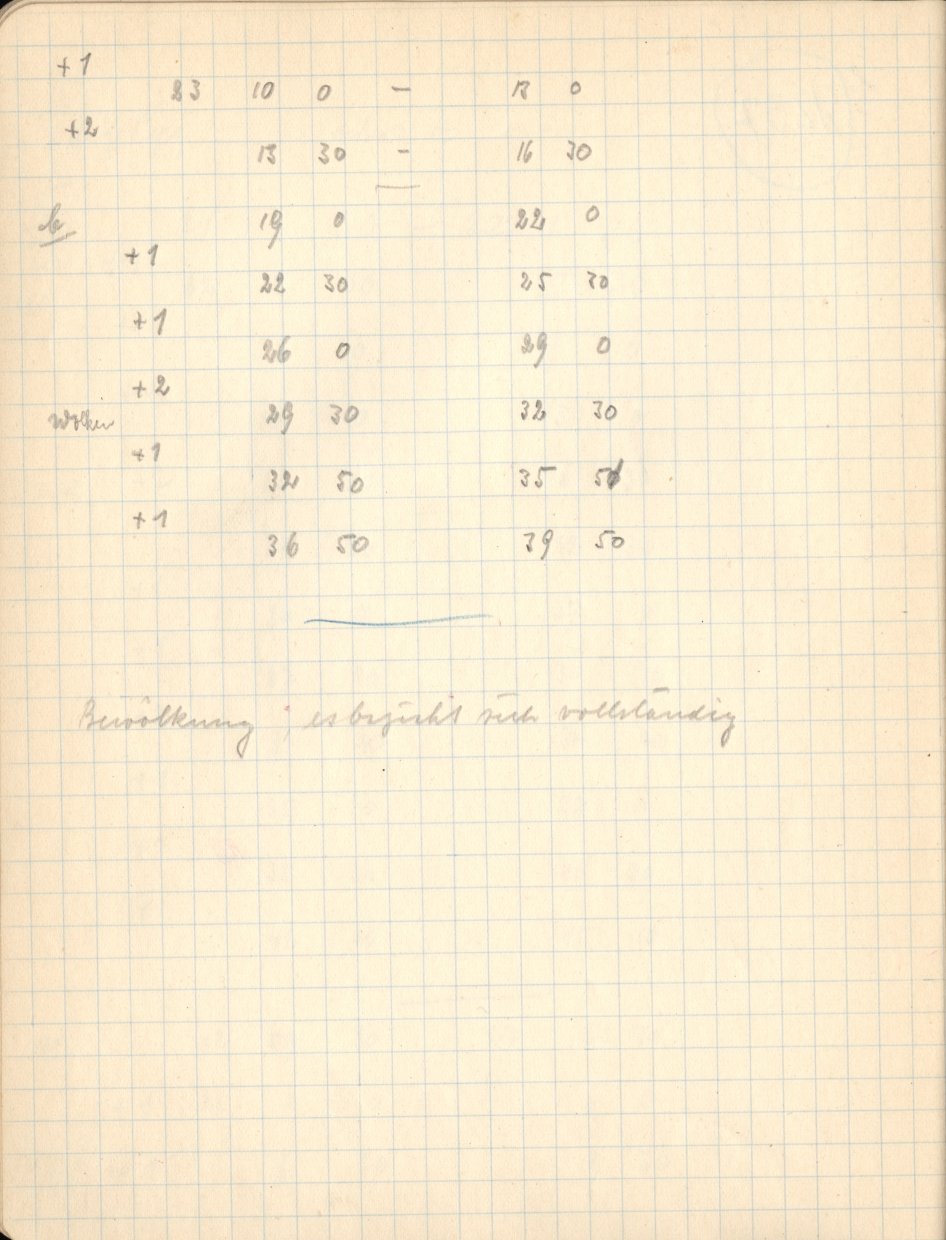 +1
23 10 0 – 13 0
+2
13 30 – 16 30
b,
19 0 22 0
+1
22 30 25 30
+1
26 0 29 0
+2
Wolken 29 30 32 30
+1
32 50 35 50
+1
36 50 39 50
Bewölkung, es bezieht sich vollständig